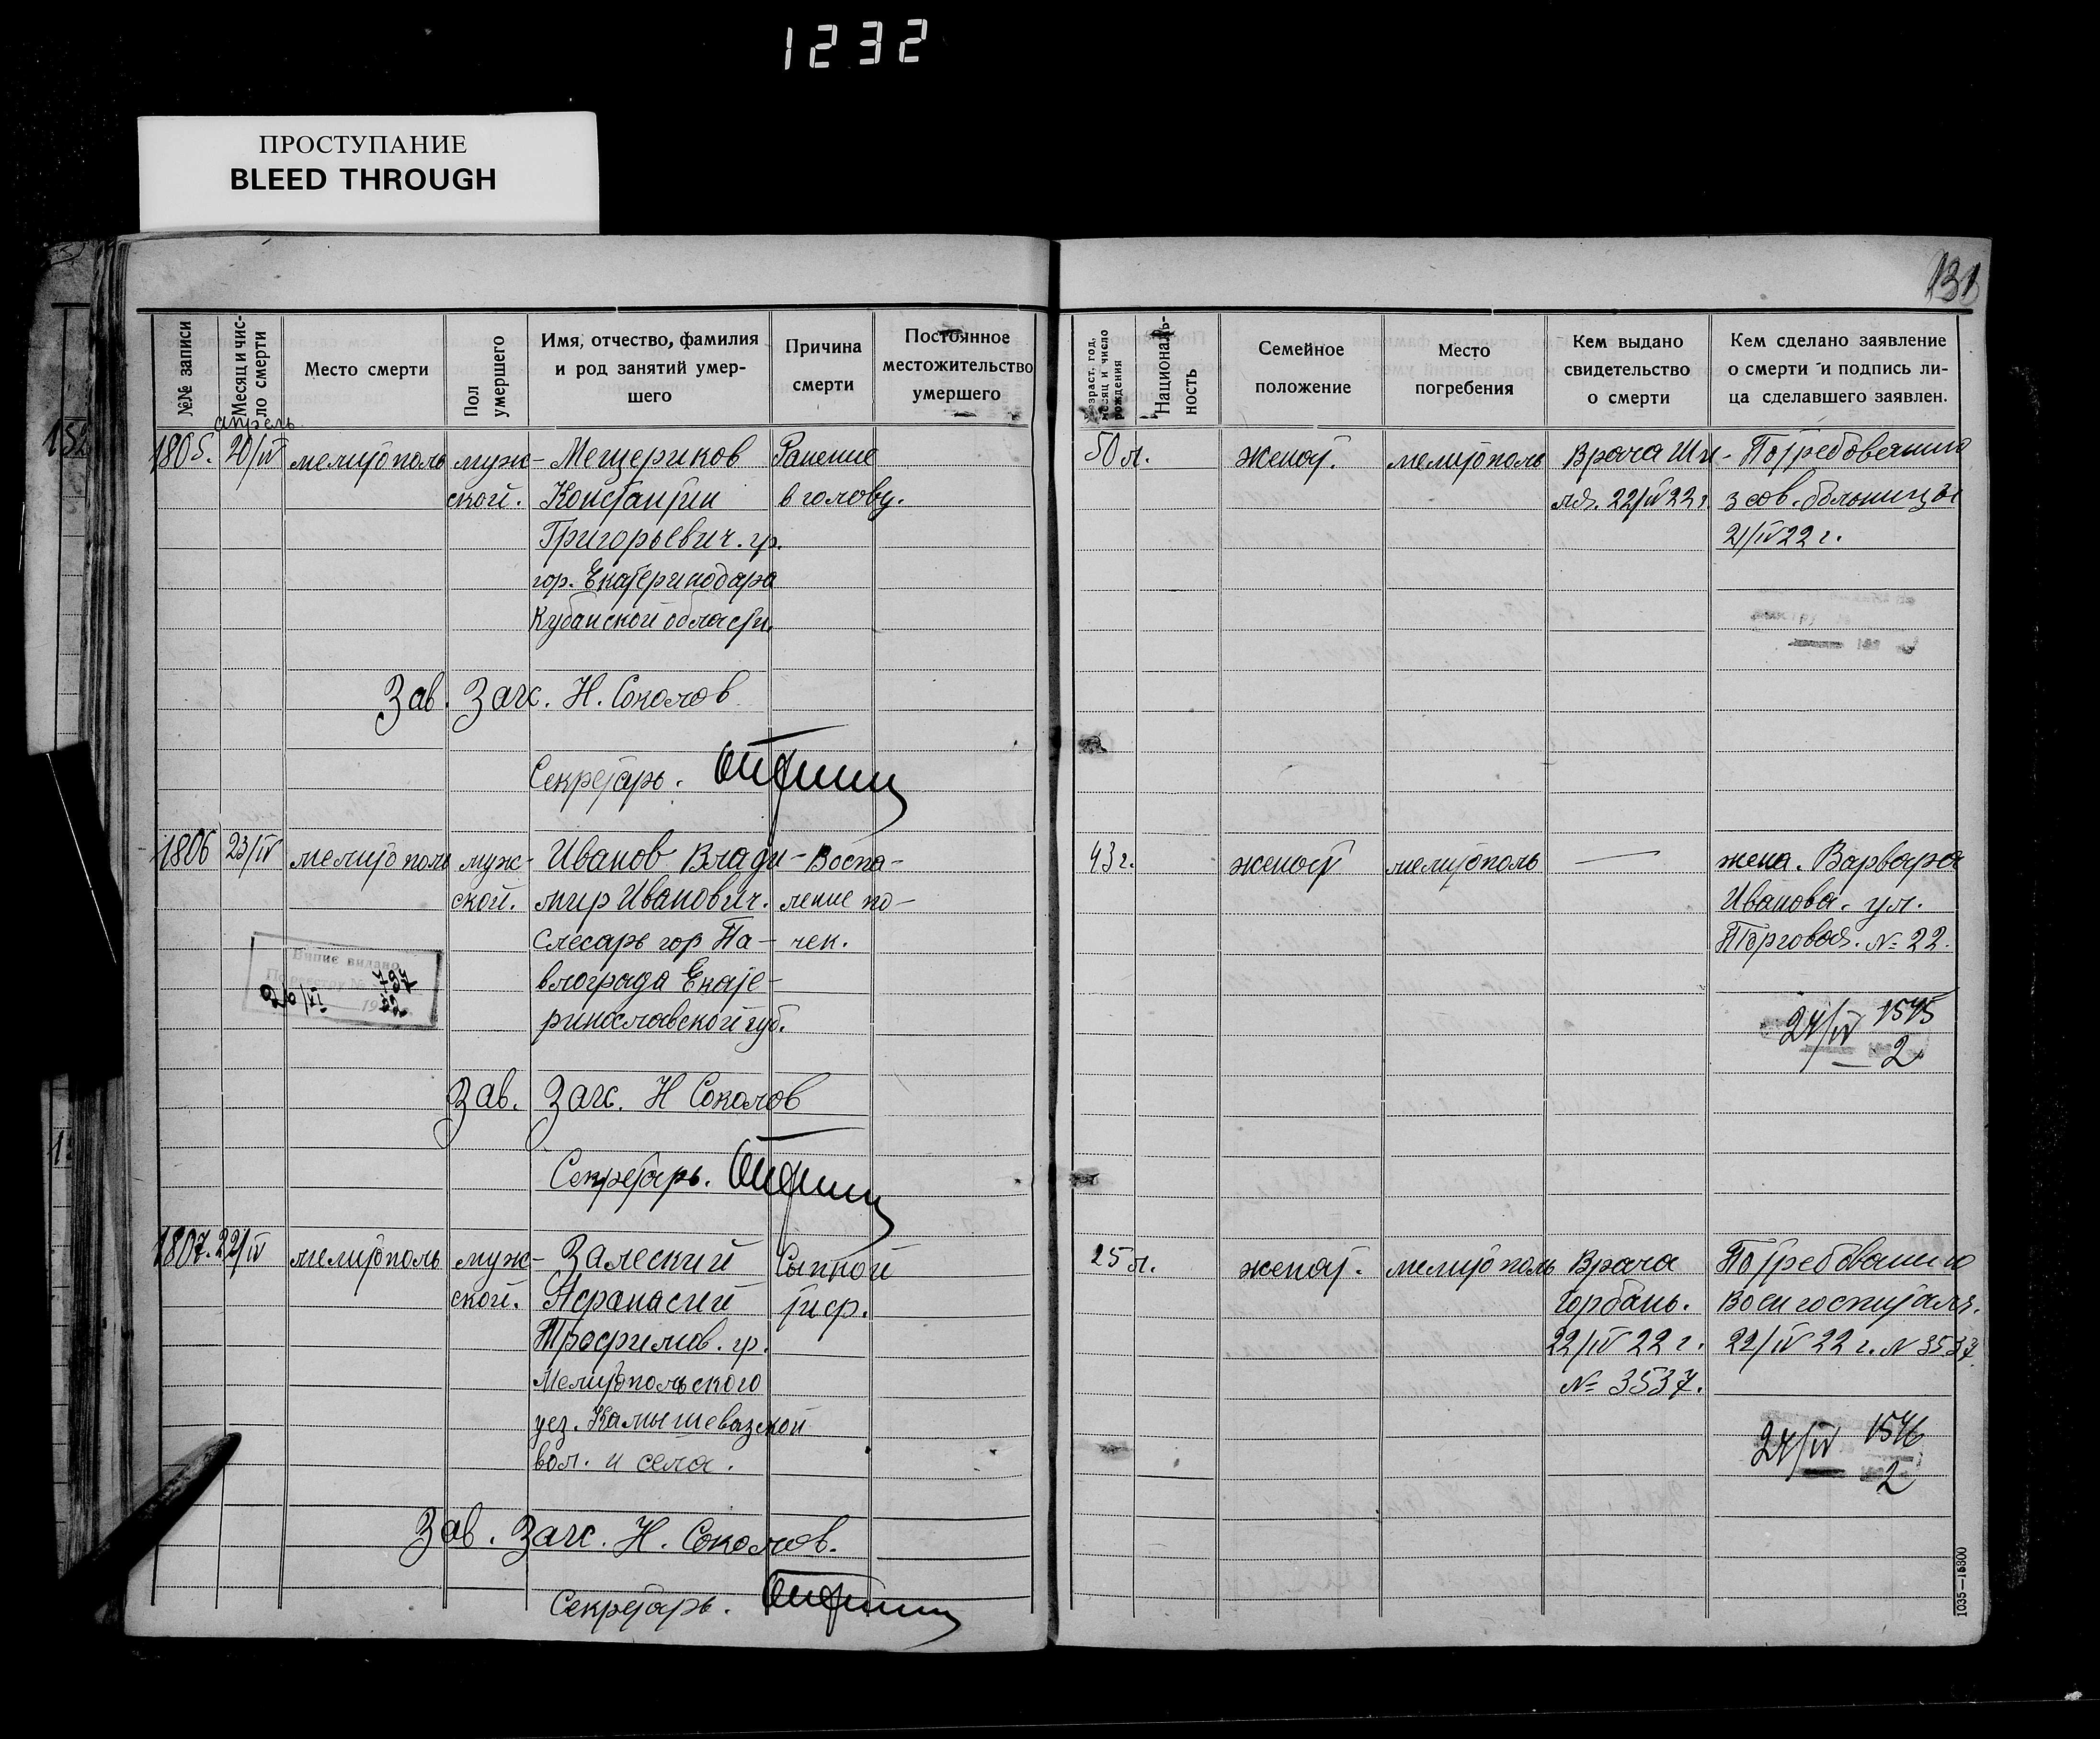 1232
ПРОСТУПАНИЕ
BLEED THROUGH
131
№№ записи
Месяц и чис-
ло смерти
Место смерти
Пол
умершего
Имя, отчество, фамилия
и род занятий умер-
шего
Причина
смерти
Постоянное
местожительство
умершего
Возраст, год,
месяц и число
рождения
Националь-
ность
Семейное
положение
Место
погребения
Кем выдано
свидетельство
о смерти
Кем сделано заявление
о смерти и подпись ли-
ца сделавшего заявлен.
апрель
1805. 20/IV мелитополь муж- Мещериков Ранение 50 л. женат. мелитополь Врача Ши- По требованию
ской. Константин в голову. ля. 22/IV 22 г. 3 сов. больницы
Григорьевич. гр. 21/IV 22 г.
гор. Екатеринодара
Кубанской области.
Зав. Загс. Н. Соколов
Секретарь.
1806 23/IV мелитополь муж- Иванов Влади- Воспа- 43 г. женат мелитополь — жена. Варвара
ской. мир Иванович. ление по- Иванова. ул.
слесарь гор Па- чек. Торговая. № 22.
влограда Екате-
ринославской губ.
Випис видано
797
20/VI 19
24/IV 1545
2
Зав. Загс. Н Соколов
Секретарь.
1807. 22/IV мелитополь муж- Залеский Сыпной 25 л. женат. мелитополь Врача По требованию
ской. Афанасий тиф. Горбань. Воен госпиталя.
Трофимов. гр. 22/IV 22 г. 22/IV 22 г. N 3537.
Мелитопольского № 3537.
уез. Камышевазской
вол. и села.
24/IV 1546
2
Зав. Загс. Н. Соколов.
Секретарь.
1035—16300